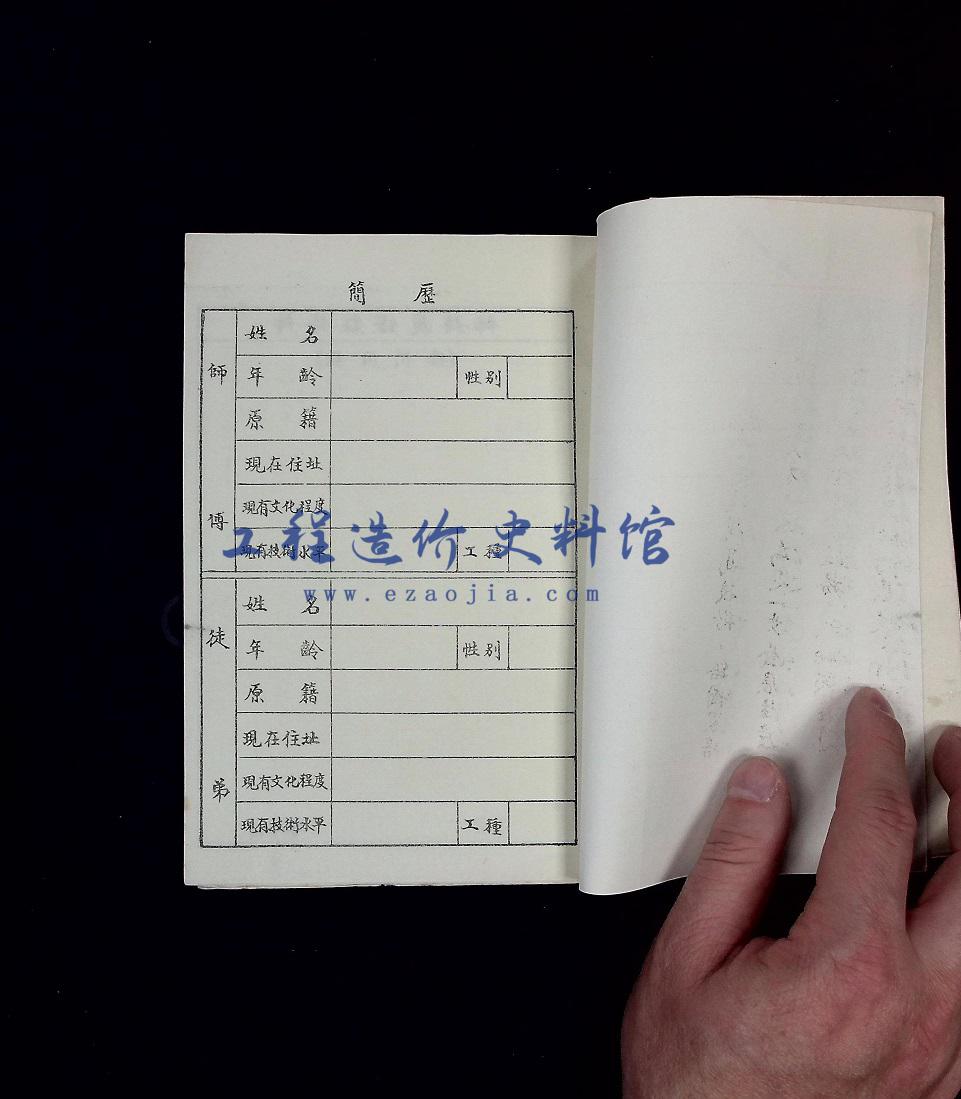 簡 歷
師博
姓 名
年 齡 性别
原 籍
現在住址
現有文化程度
現有技術水平 工種
徒弟
姓 名
年 齡 性别
原 籍
現在住址
現有文化程度
現有技術水平 工種
工程造价史料馆
www.ezaojia.com